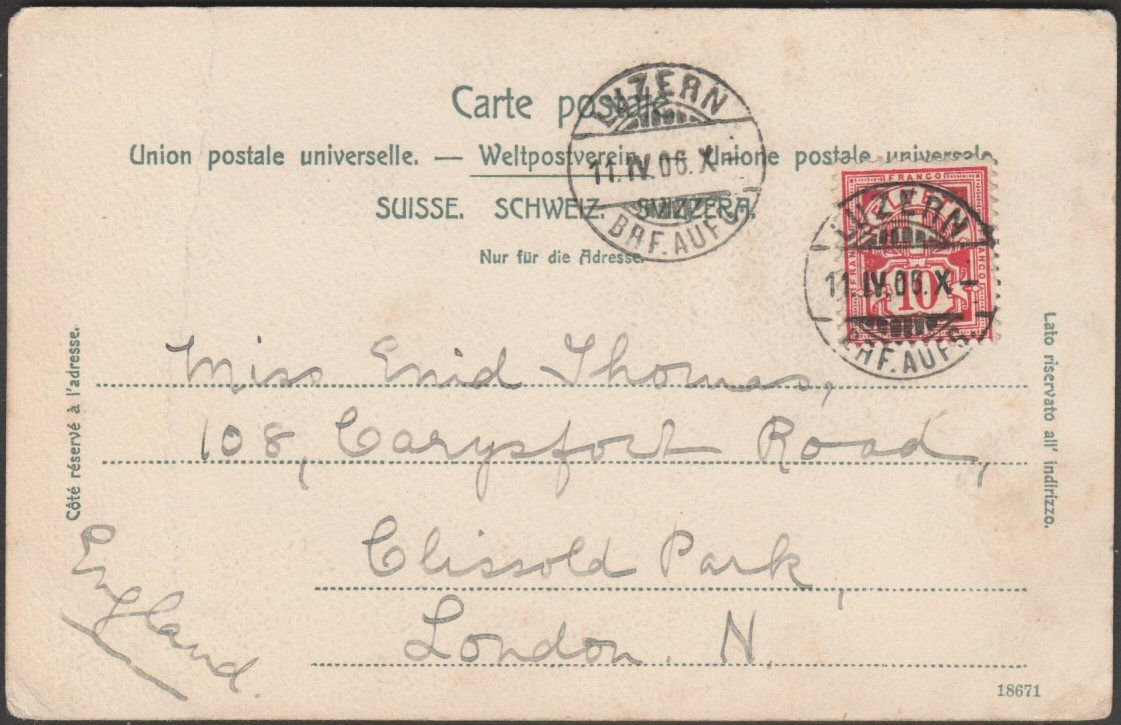 Carte postale
Union postale universelle. — Weltpostverein. — Unione postale universale
SUISSE. SCHWEIZ. SVIZZERA.
Nur für die Adresse.
LUZERN
11.IV.06.X–
BRF.AUFG.
FRANCO
FRANCO
FRANCO
10
LUZERN
11.IV.06.X–
BRF.AUFG.
Côté réservé à l'adresse.
Lato riservato all' indirizzo.
Miss Enid Thomas,
108, Carysfort Road,
Clissold Park,
London. N.
England.
18671